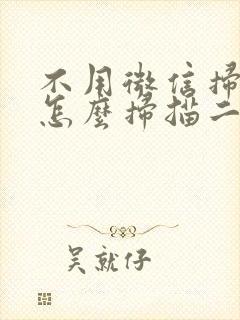 不用微信掃
怎麼掃描二
吳就仔